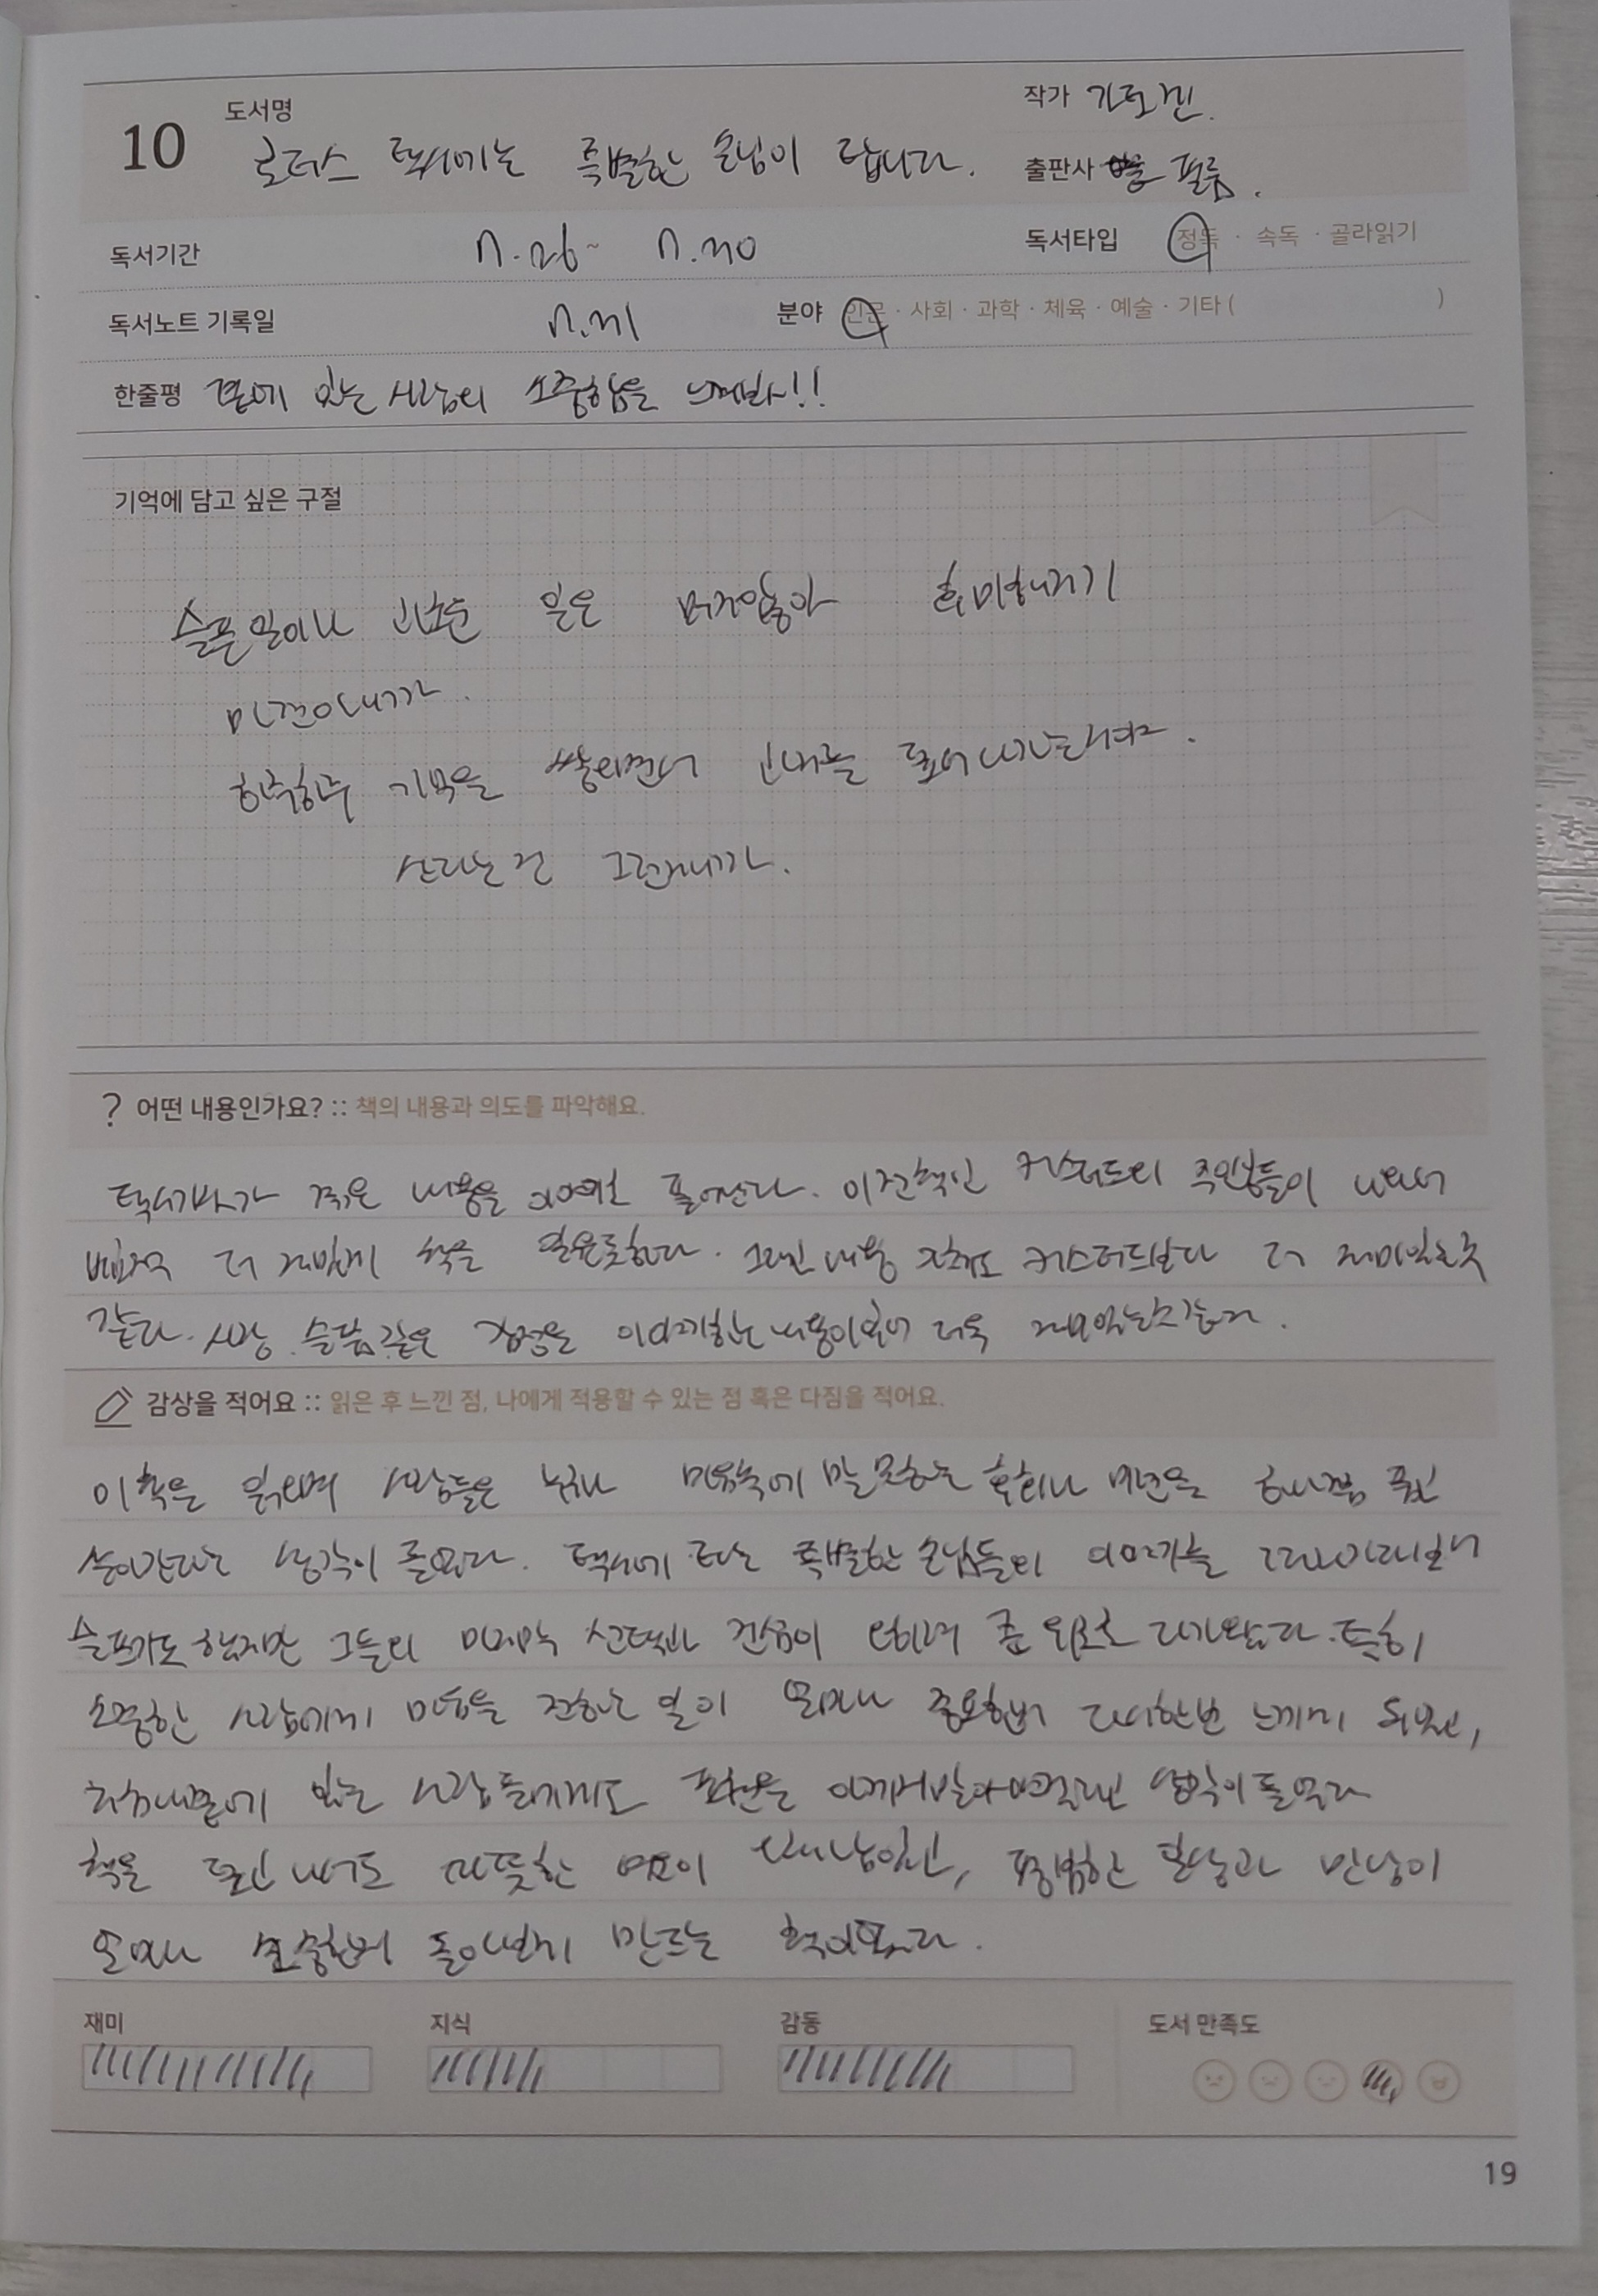 10
도서명
로터스 택시에는 특별한 손님이 탑니다.
작가 가토 겐.
출판사 필름.
독서기간 7.26~ 7.30
독서타입 정독 · 속독 · 골라읽기
독서노트 기록일 7.31
분야 인문 · 사회 · 과학 · 체육 · 예술 · 기타 ( )
한줄평 곁에 있는 사람의 소중함을 느껴보자!!
기억에 담고 싶은 구절
슬픈일이나 일은 머지않아 희미해지기
마련이니까.
하루하루 기억을 쌓으면서 고개를 들어
산다는건 그런거니까.
? 어떤 내용인가요? :: 책의 내용과 의도를 파악해요.
택시기사가 겪은 내용을 풀어쓴다. 이전책인 커스터드의 주인공들이 나와서
더 재밌게 책을 읽은듯하다. 그리고 내용 자체도 커스터드보다 더 재미있는것
같다. 사랑. 슬픔같은 감정을 이야기하는 내용이 있어 더욱 재미있는것같다.
감상을 적어요 :: 읽은 후 느낀 점, 나에게 적용할 수 있는 점 혹은 다짐을 적어요.
이책을 읽으며 사람들은 누구나 마음속에 말 못하는 후회나 미련을 하나쯤 품고
살아간다는 생각이 들었다. 택시에 타는 특별한 손님들의 이야기를
슬프기도 했지만 그들의 마지막 선택과 진심이 오히려 큰 위로로 다가왔다. 특히
소중한 사람에게 마음을 전하는 일이 얼마나 중요한지 다시한번 느끼게 되었고,
있는 사람들에게도 표현을 아끼지말아야겠다고 생각이 들었다
책을 덮고 나서도 따뜻한 여운이 남았고, 평범한 일상과 만남이
얼마나 소중한지 돌아보게 만드는 책이었다.
재미
지식
감동
도서 만족도
19